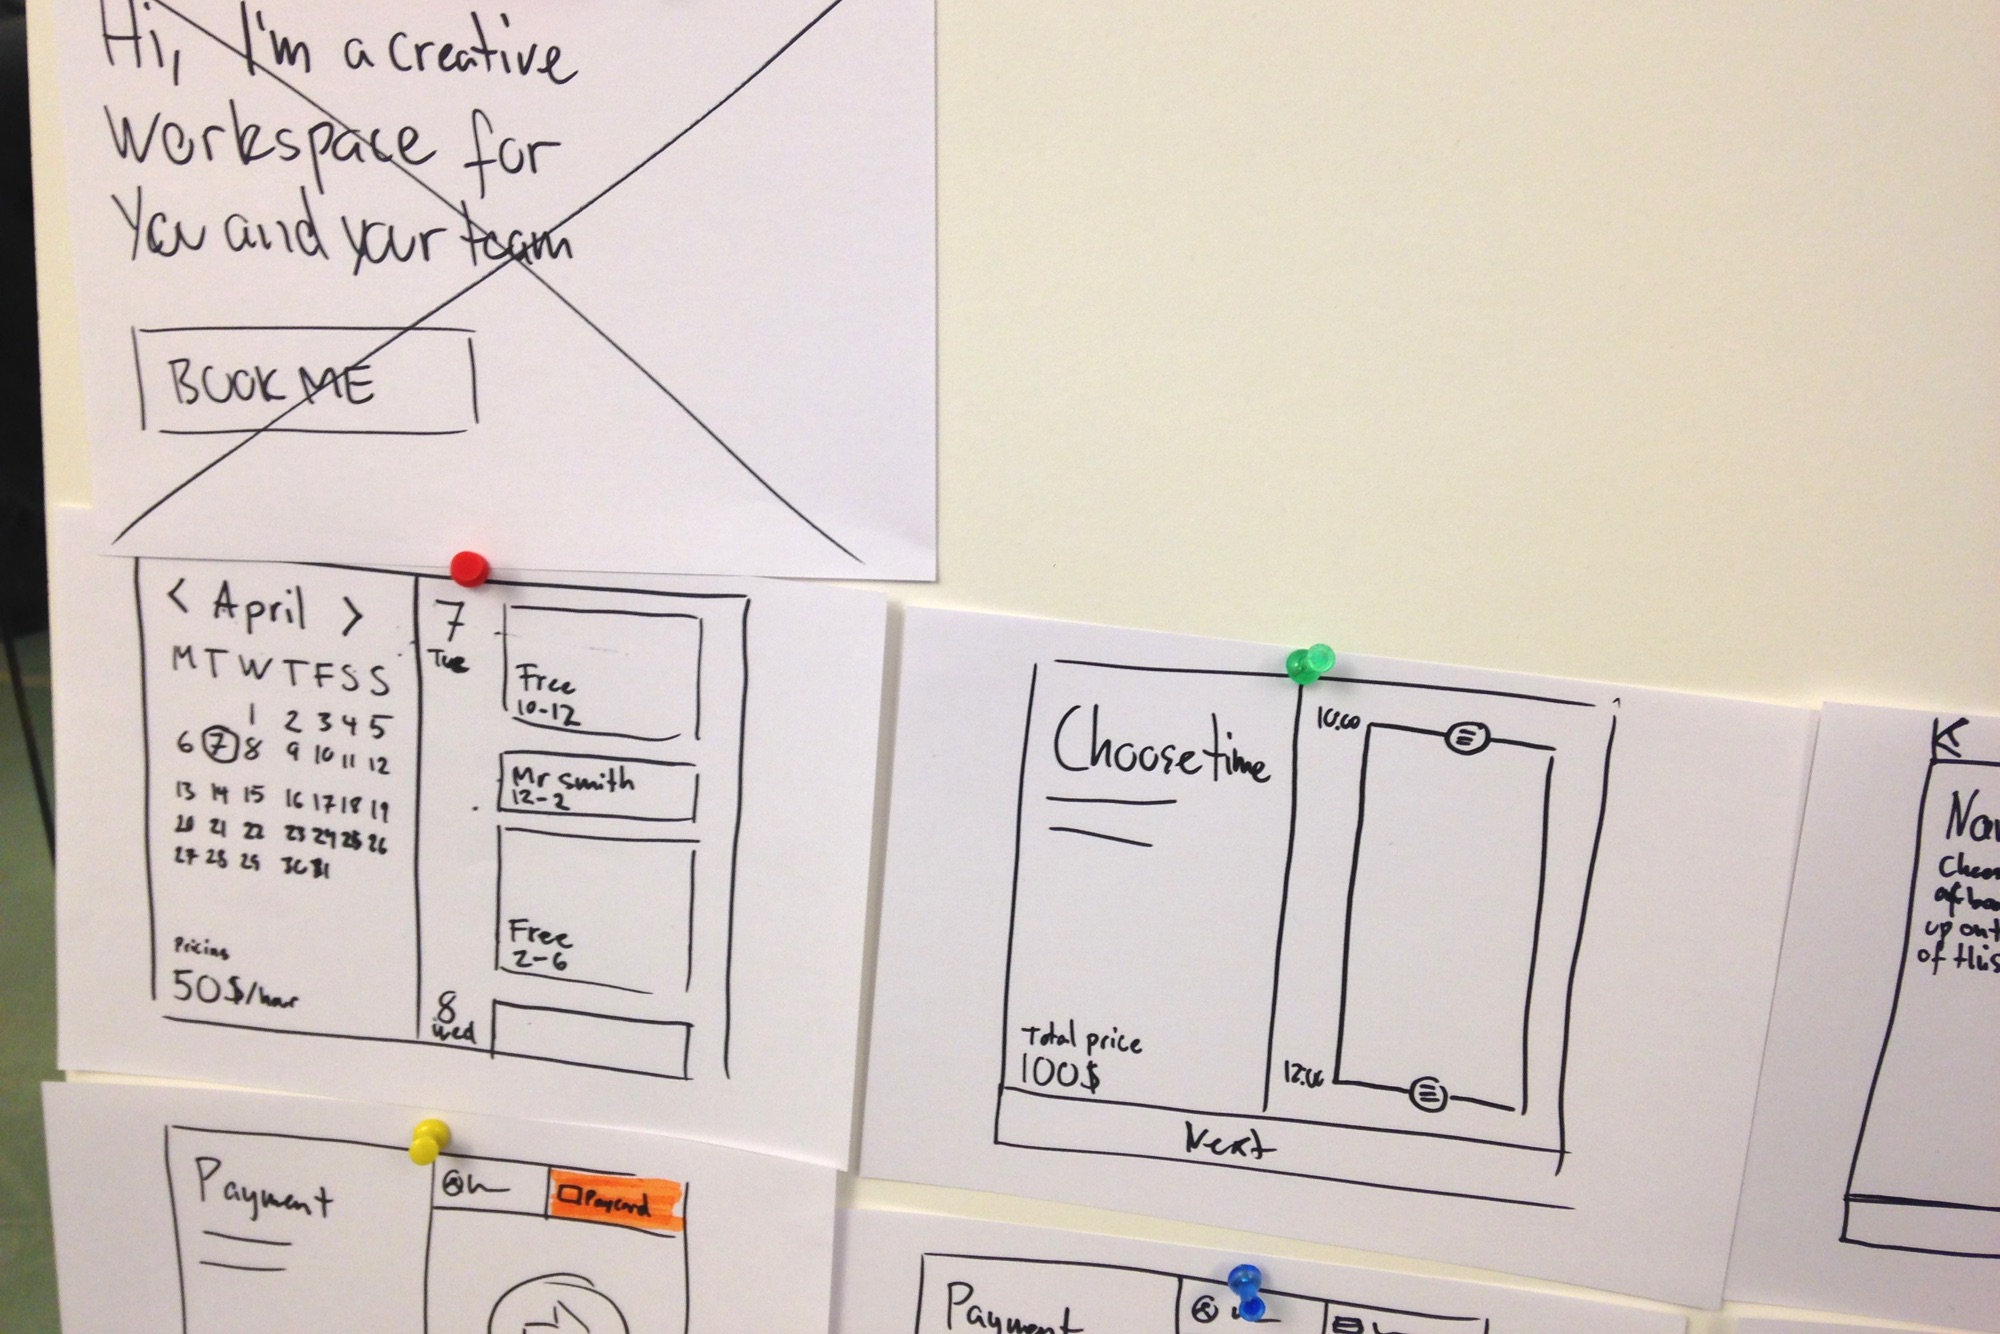 Hi, I'm a creative
workspace for
You and your team
BOOK ME
< April >
M T W T F S S
1 2 3 4 5
6 7 8 9 10 11 12
13 14 15 16 17 18 19
20 21 22 23 24 25 26
27 28 29 30 31
Pricing
50$/hour
7
Tue
Free
10-12
Mr smith
12-2
Free
2-6
8
Wed
Choose time
Total price
100$
10.00
12.00
Next
of this
Payment
Paycard
Payment